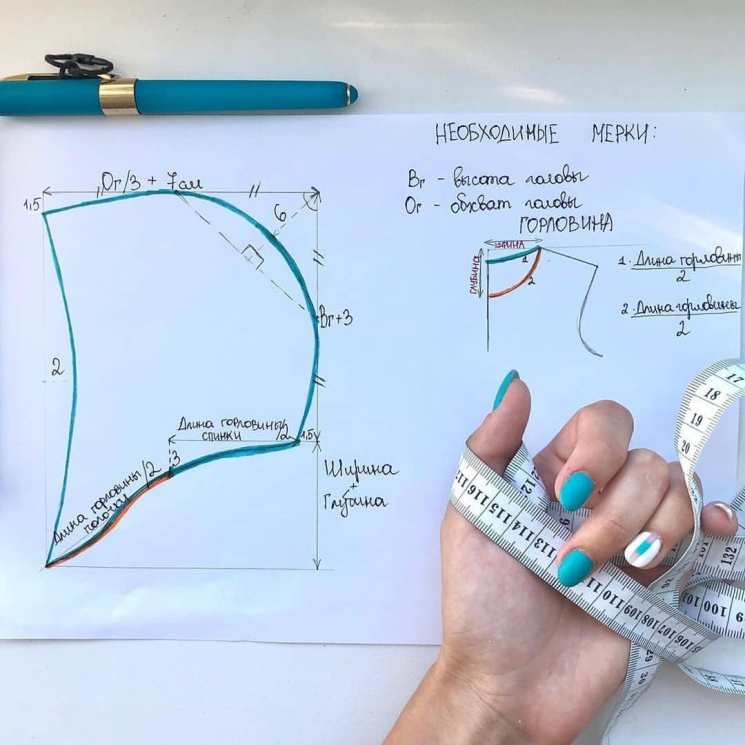 НЕОБХОДИМЫЕ МЕРКИ:
Вг - высота головы
Ог - обхват головы
ГОРЛОВИНА
ШИРИНА
ГЛУБИНА
1
2
1. Длина горловины
2
2. Длина горловины
2
Ог/3 + 7см
1,5
6
Вг+3
2
Длина горловины
спинки /2
1,5
3
Длина горловины /2
полочки
Ширина
+
Глубина
17
18
19
20
112
116 115 114 113 111 110 109 108 107 106
132
100